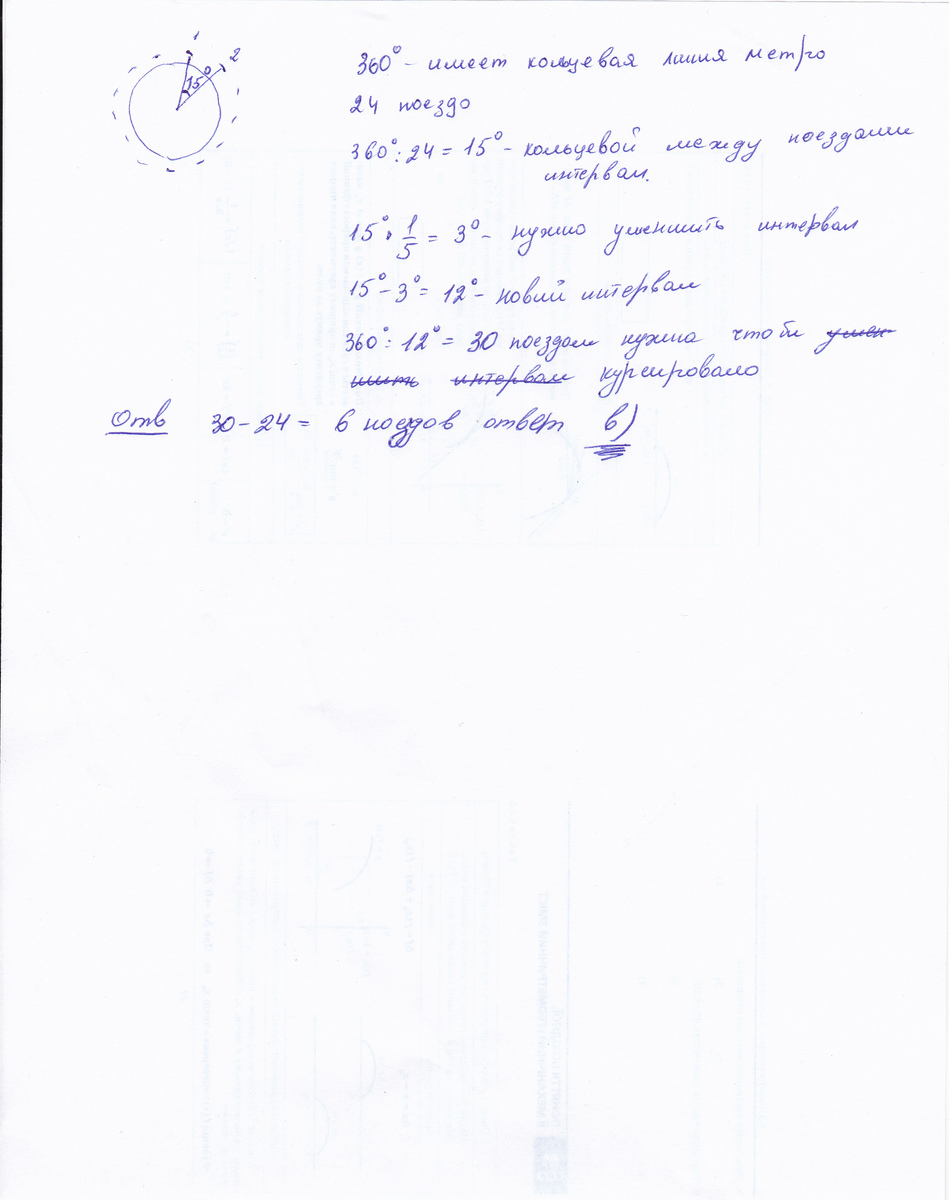 1
2
15°
360° - имеет кольцевая линия метро
24 поездо
360° : 24 = 15° - кольцевой между поездами
интервал.
15° · 1/5 = 3° - нужно уменшить интервал
15° - 3° = 12° - новий интервал
360° : 12° = 30 поездам нужно чтоби умен
шить интервал курсировало
Отв 30 - 24 = 6 поездов ответ в)